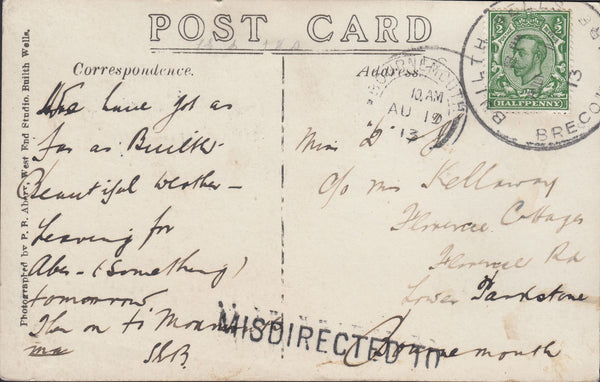 POST CARD
Correspondence.
Address
Photographed by P. B. Abery, West End Studio, Builth Wells.
We have got as
far as Builth-
Beautiful weather-
Leaving for
Aber-(something)
tomorrow
Then on to
S.E.B.
BOURNEMOUTH
10. AM
AU 19
13
BUILTH WELLS
13
BRECON
HALFPENNY
Miss
c/o Mrs Kellaway
Florence Cottages
Florence Rd
Lower Parkstone
Bournemouth
MISDIRECTED TO